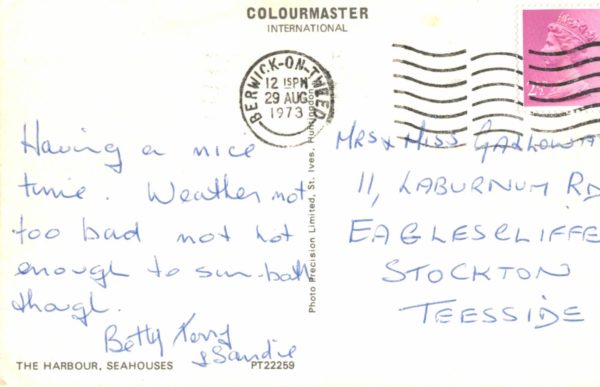 COLOURMASTER
INTERNATIONAL
BERWICK-ON-TWEED
12 15PM
29 AUG
1973
Having a nice
time. Weather not
too bad not hot
enough to sun-bath
though.
Betty Terry
& Sandie
Photo Precision Limited, St. Ives, Huntingdon
MRS & MISS GALLOWAY
11, LABURNUM RD
EAGLESCLIFFE
STOCKTON
TEESSIDE
THE HARBOUR, SEAHOUSES
PT22259